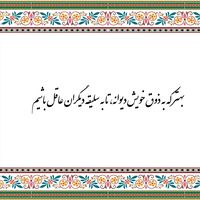 بهتر که به ذوق خویش دیوانه، تا به سلیقه دیگران عاقل باشیم